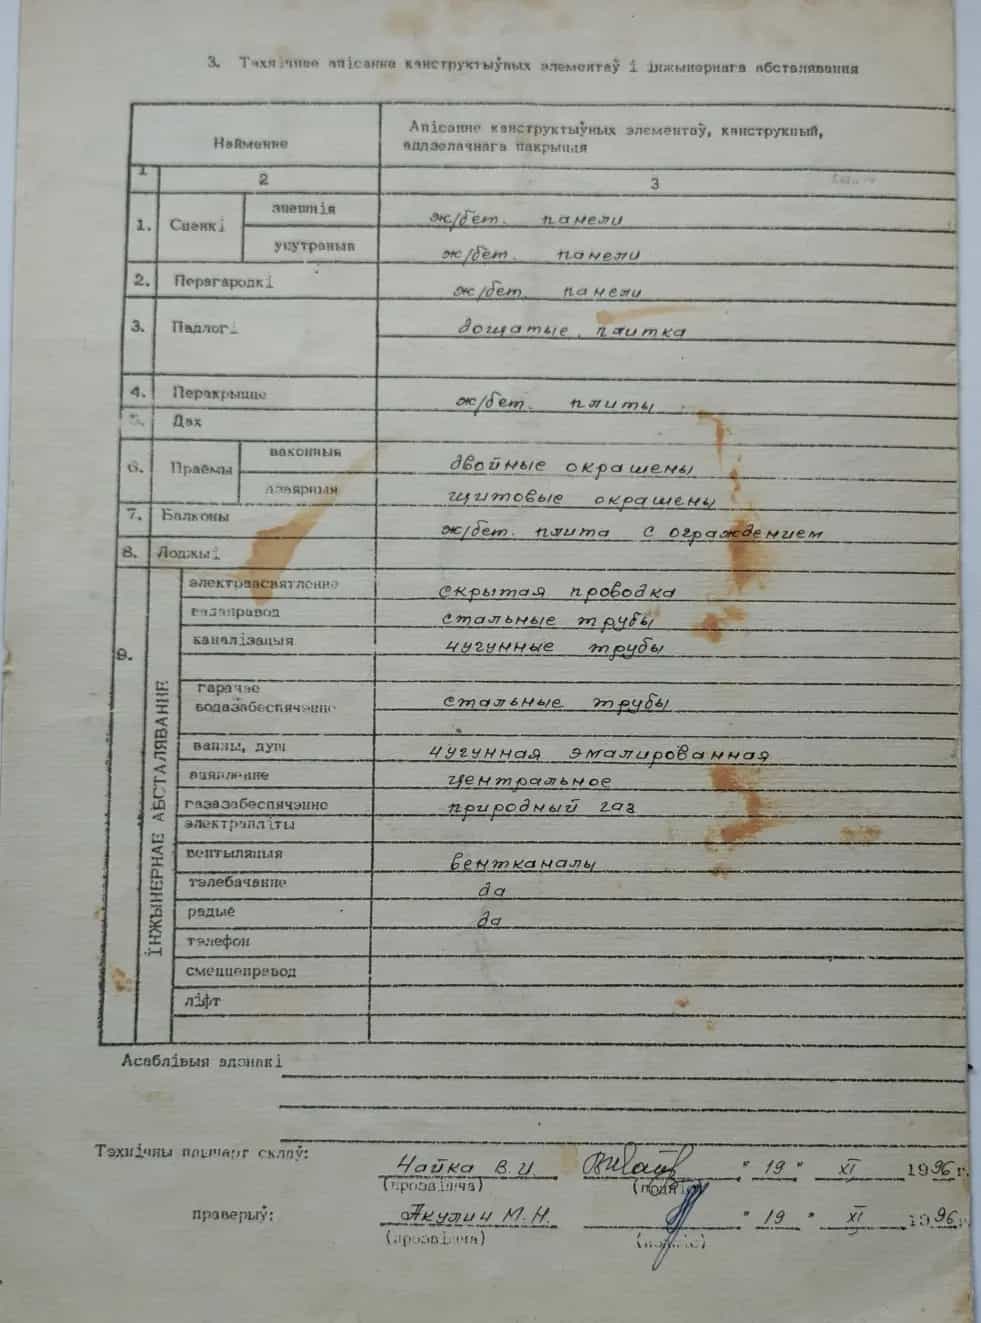 3. Тэхнічнае апісанне канструктыўных элементаў і інжынернага абсталявання
Найменне
Апісанне канструктыўных элементаў, канструкцый,
аддзелачнага пакрыцця
1 2 3
1. Сценкі знешнія ж/бет. панели
унутраныя ж/бет. панели
2. Перагародкі ж/бет. панели
3. Падлогі дощатые, плитка
4. Перакрыцце ж/бет. плиты
5. Дах
6. Праёмы ваконныя двойные окрашены
дзвярныя щитовые окрашены
7. Балконы ж/бет. плита с ограждением
8. Лоджыі
9. ІНЖЫНЕРНАЕ АБСТАЛЯВАННЕ
электраасвятленне скрытая проводка
водаправод стальные трубы
каналізацыя чугунные трубы
гарачае
водазабеспячэнне стальные трубы
ванны, душ чугунная эмалированная
ацяпленне центральное
газазабеспячэнне природный газ
электрапліты
вентыляцыя вентканалы
тэлебачанне да
радыё да
тэлефон
смеццеправод
ліфт
Асаблівыя адзнакі
Тэхнічны пашпарт склаў: Чайка В.И. "19" XI 1996 г.
(прозвішча) (подпіс)
праверыў: Акулич М.Н. "19" XI 1996 г.
(прозвішча) (подпіс)